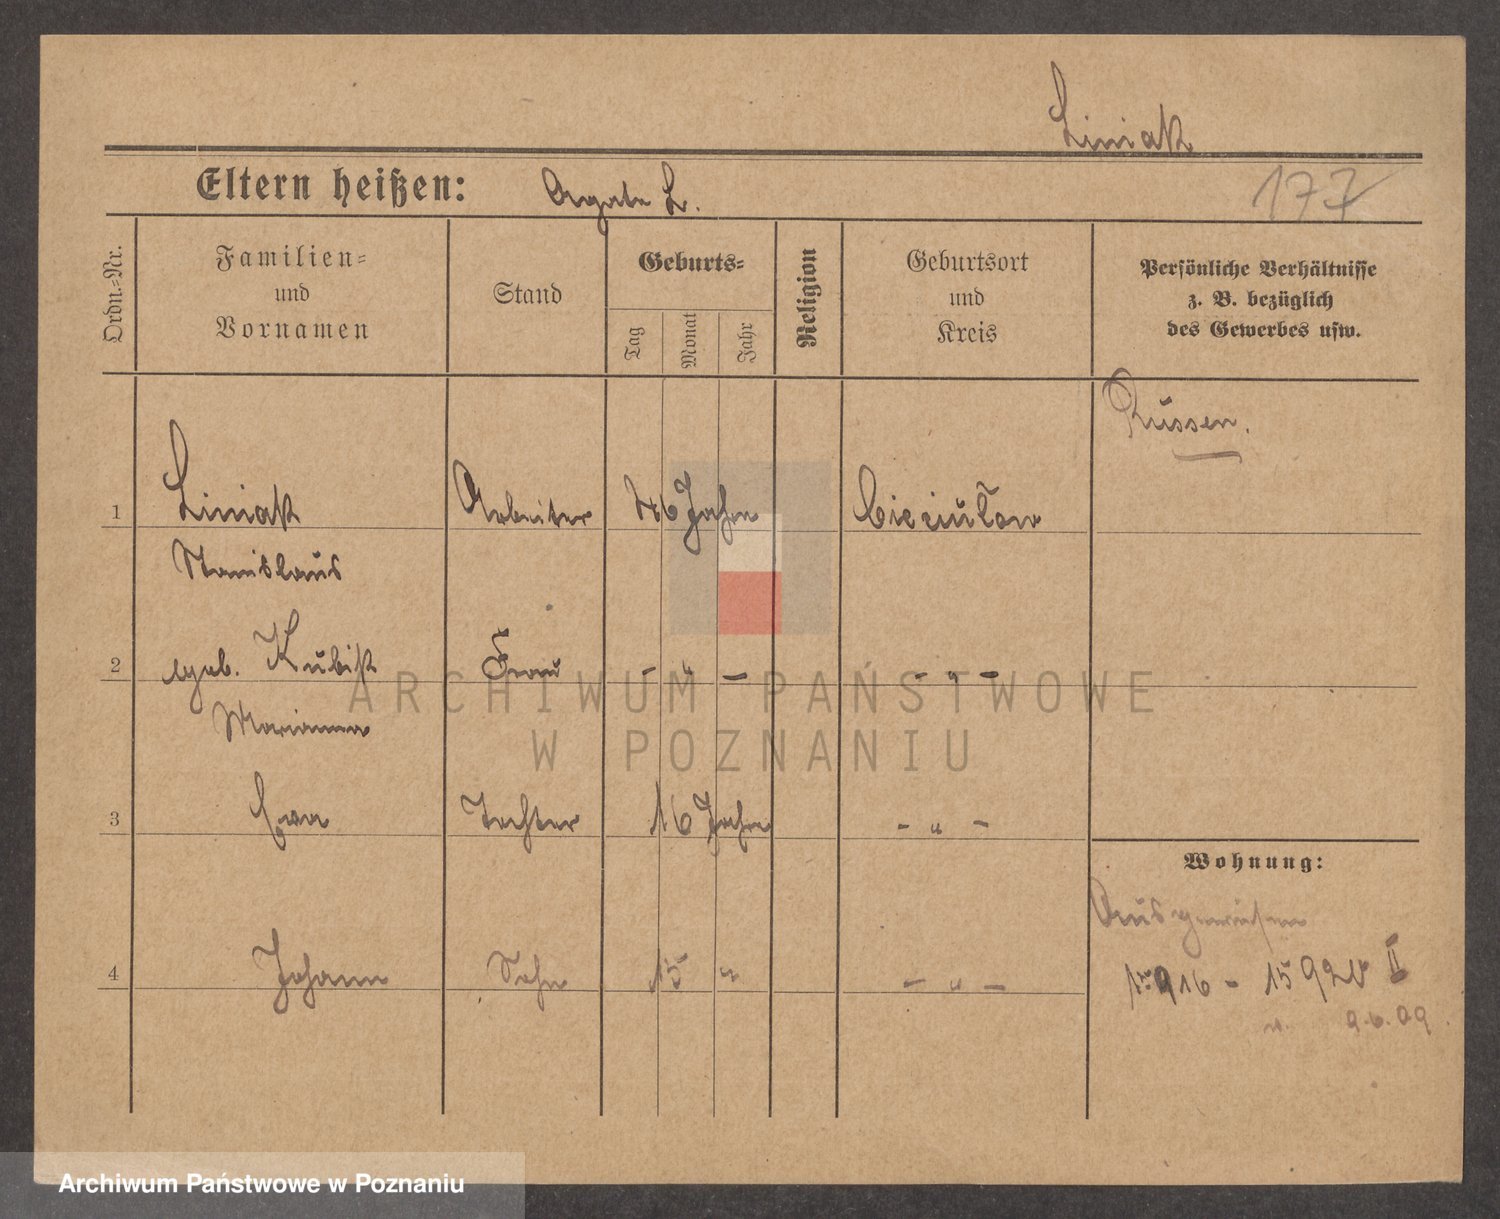 Liniak
Eltern heißen: Agate L.
177
Ordn.-Nr.
Familien-
und
Vornamen
Stand
Geburts-
Tag
Monat
Jahr
Religion
Geburtsort
und
Kreis
Persönliche Verhältnisse
z. B. bezüglich
des Gewerbes usw.
Russen.
1 Liniak Arbeiter 46 Jahre
Stanislaus
2 geb. Kubik Frau - " - - " -
Marianna
3 Ewa Tochter 16 Jahre - " -
Wohnung:
Ausgewiesen
4 Johann Sohn 15 " - " -
916 - 15920 II
9.6.09.
ARCHIWUM PAŃSTWOWE
W POZNANIU
Archiwum Państwowe w Poznaniu